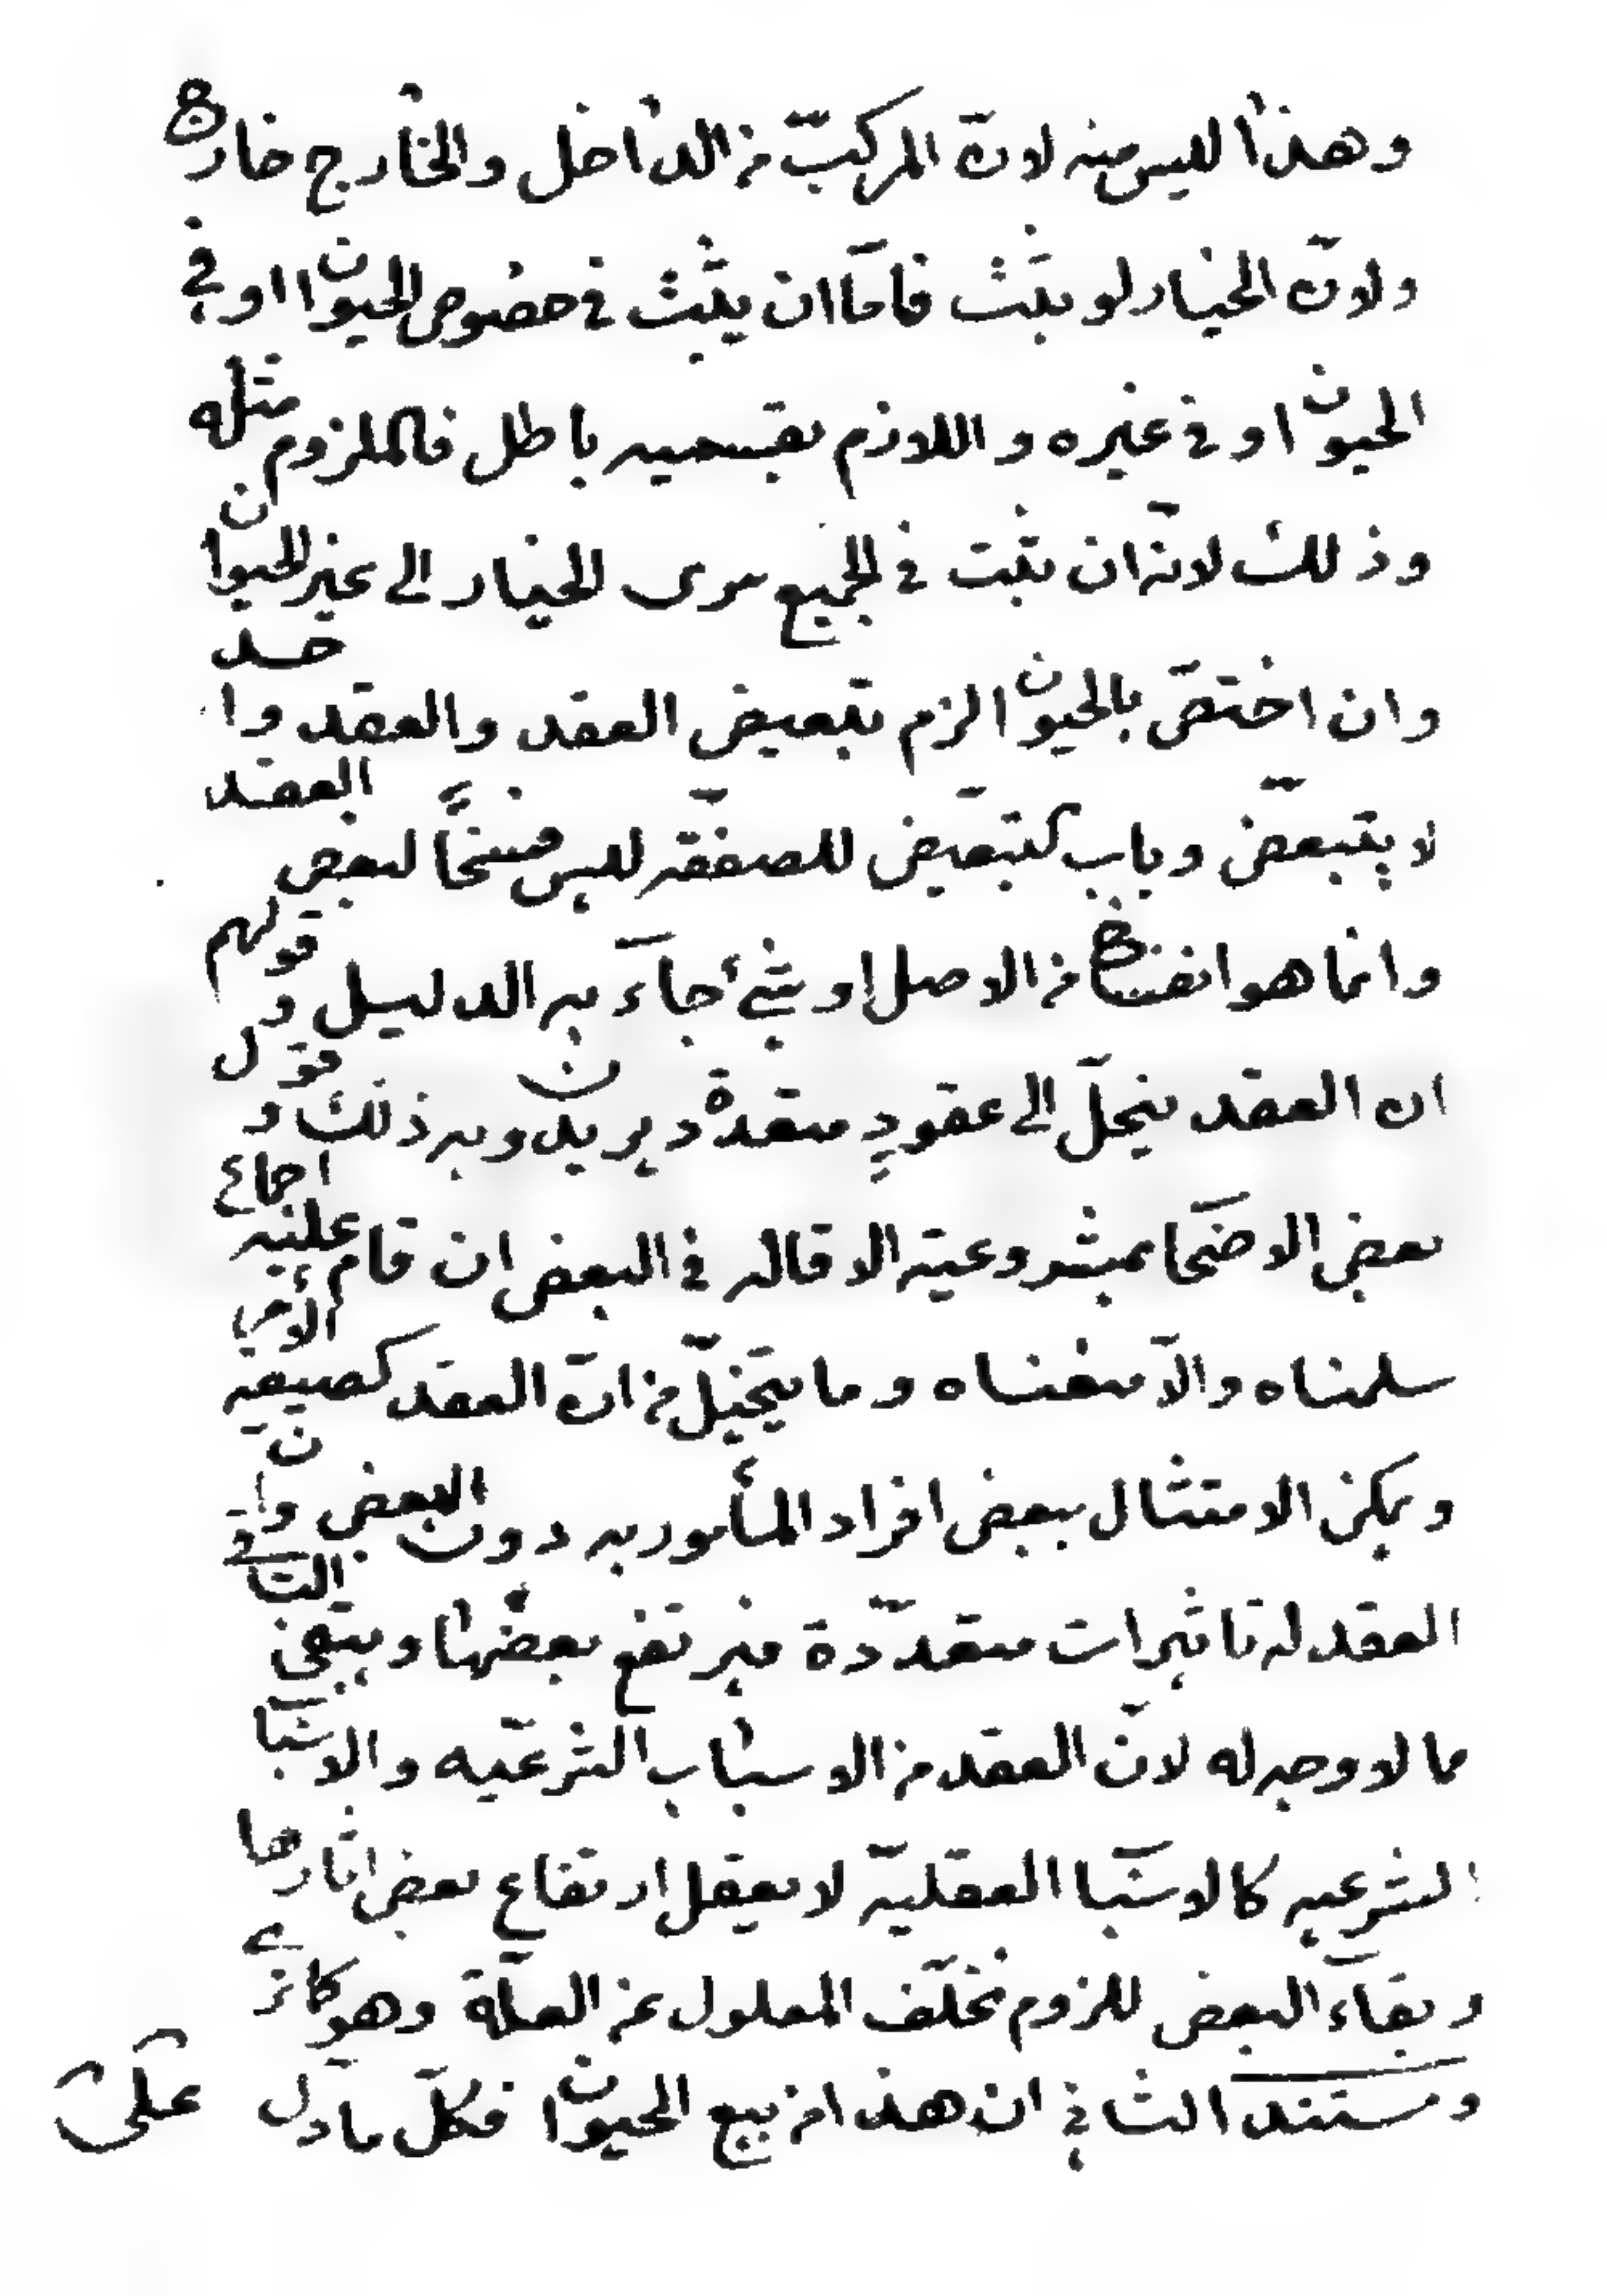 وهذا ليس منه لانّ المركّب من الداخل والخارج خارج
ولانّ الخيار لو يثبت فامّا ان يثبت في خصوص الحيوان او في
الحيوان او في غيره واللازم بقسميه باطل فالملزوم مثله
وذلك لانّه ان ثبت في الجميع سرى الخيار الى غير الحيوان
وان اختصّ بالحيوان لزم تبعيض العقد والعقد واحد
لا يتبعّض وباب تبعّيض الصفقّه ليس فسخاً لبعض العقد
وانما هو انفساخ من الاصل او شئ جآء به الدليل وقولهم
ان العقد ينحلّ الى عقودٍ متعددة يريدون به ذلك وقول
بعض الاصحاب بمشروعية الاقاله في البعض ان قام عليه اجماع
سلمناه والاّ منعناه وما يتخيّل من انّ العقد كصيغة الأمر
ويمكن الامتثال ببعض افراد المأمور به دون البعض وانّ
العقد له تاثيرات متعدّدة فيرتفع بعضها ويبقى الباقي
ما لا وجه له لانّ العقد من الاسباب الشرعيّه والاسباب
الشرعيه كالاسباب العقليّه لا يعقل ارتفاع بعض اثارها
وبقآء البعض للزوم تخلّف المعلول عن العلّة وهو كما ترى
ومستند الثاني ان هذا من بيع الحيوان فكلّ ما دلّ على